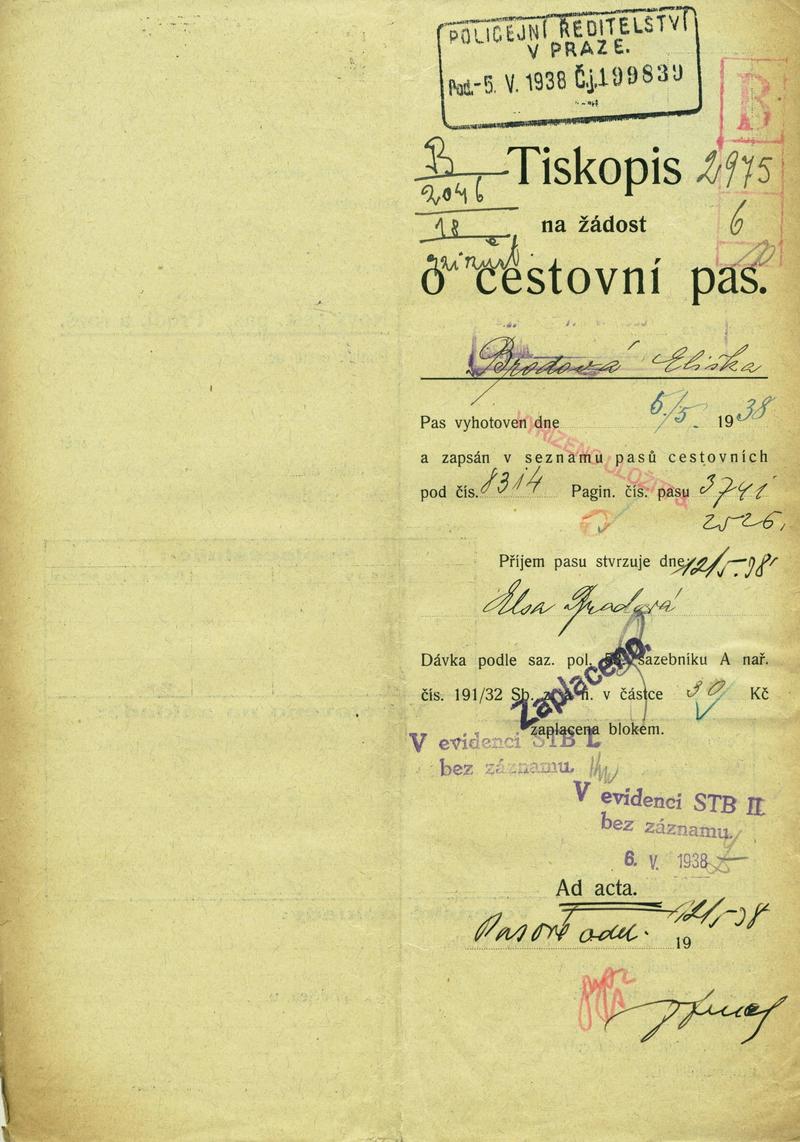 POLICEJNÍ ŘEDITELSTVÍ
V PRAZE.
Pod.-5. V. 1938 Č.j.199839
B
B
2046
18
Tiskopis 2975
na žádost 6
o cestovní pas.
Brodová Eliška
Pas vyhotoven dne 5/5. 1938
VYŘÍZENO ULOŽIT
a zapsán v seznamu pasů cestovních
pod čís. 8314 Pagin. čís. pasu 3741
2526,
Příjem pasu stvrzuje dne 12/5.38
Elsa Brodová
Dávka podle saz. pol. sazebníku A nař.
čís. 191/32 Sb. z. a n. v částce 30 Kč
Zaplaceno.
zaplacena blokem.
V evidenci STB I.
bez záznamu.
V evidenci STB II
bez záznamu.
6. V. 1938
Ad acta.
Pasové odd. 12/5 38
19